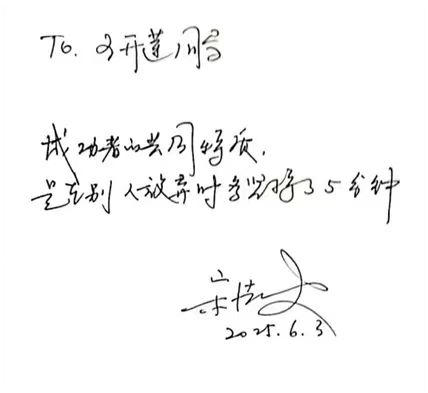 To. 开莲同学
成功者的共同特质，
是在别人放弃时多坚持了5分钟
2025.6.3